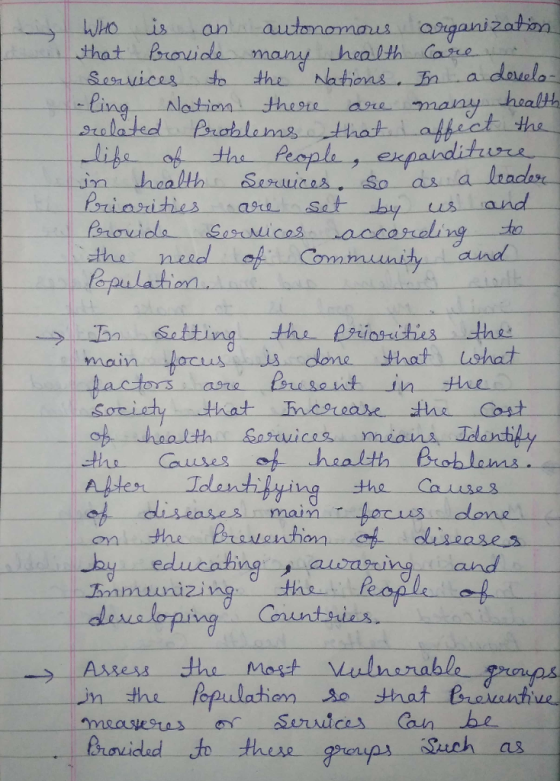 → WHO is an autonomous organization
that Provide many health Care
Services to the Nations. In a develo-
-Ping Nation there are many health
related Problems that affect the
life of the People, expanditure
in health Services. So as a leader
Priorities are set by us and
Provide Services according to
the need of Community and
Population.
→ In Setting the Priorities the
main focus is done that what
factors are Present in the
Society that Increase the Cost
of health Services means Identify
the Causes of health Problems.
After Identifying the Causes
of diseases main focus done
on the Prevention of diseases
by educating, awaring and
Immunizing the People of
developing Countries.
→ Assess the Most Vulnerable groups
in the Population so that Preventive
measures or Services Can be
Provided to these groups Such as